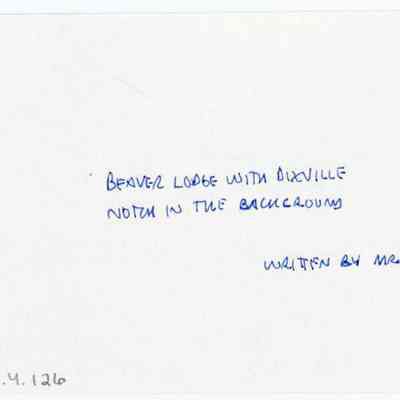 BEAVER LODGE WITH DIXVILLE
NOTCH IN THE BACKGROUND
WRITTEN BY MR
.4.126